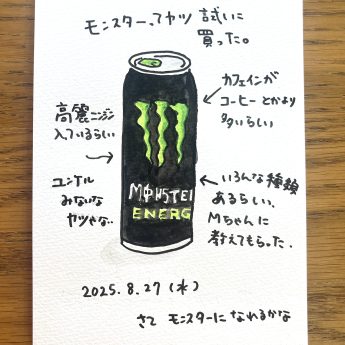 モンスターってヤツ 試しに
買った。
カフェインが
コーヒー とかより
多いらしい
高麗ニンジン
入ているらしい
ユンケル
みたいな
ヤツやな。
いろんな種類
あるらしい、
Mちゃんに
教えてもらった.
MONSTE
ENERG
2025.8.27(水)
さて モンスターに なれるかな